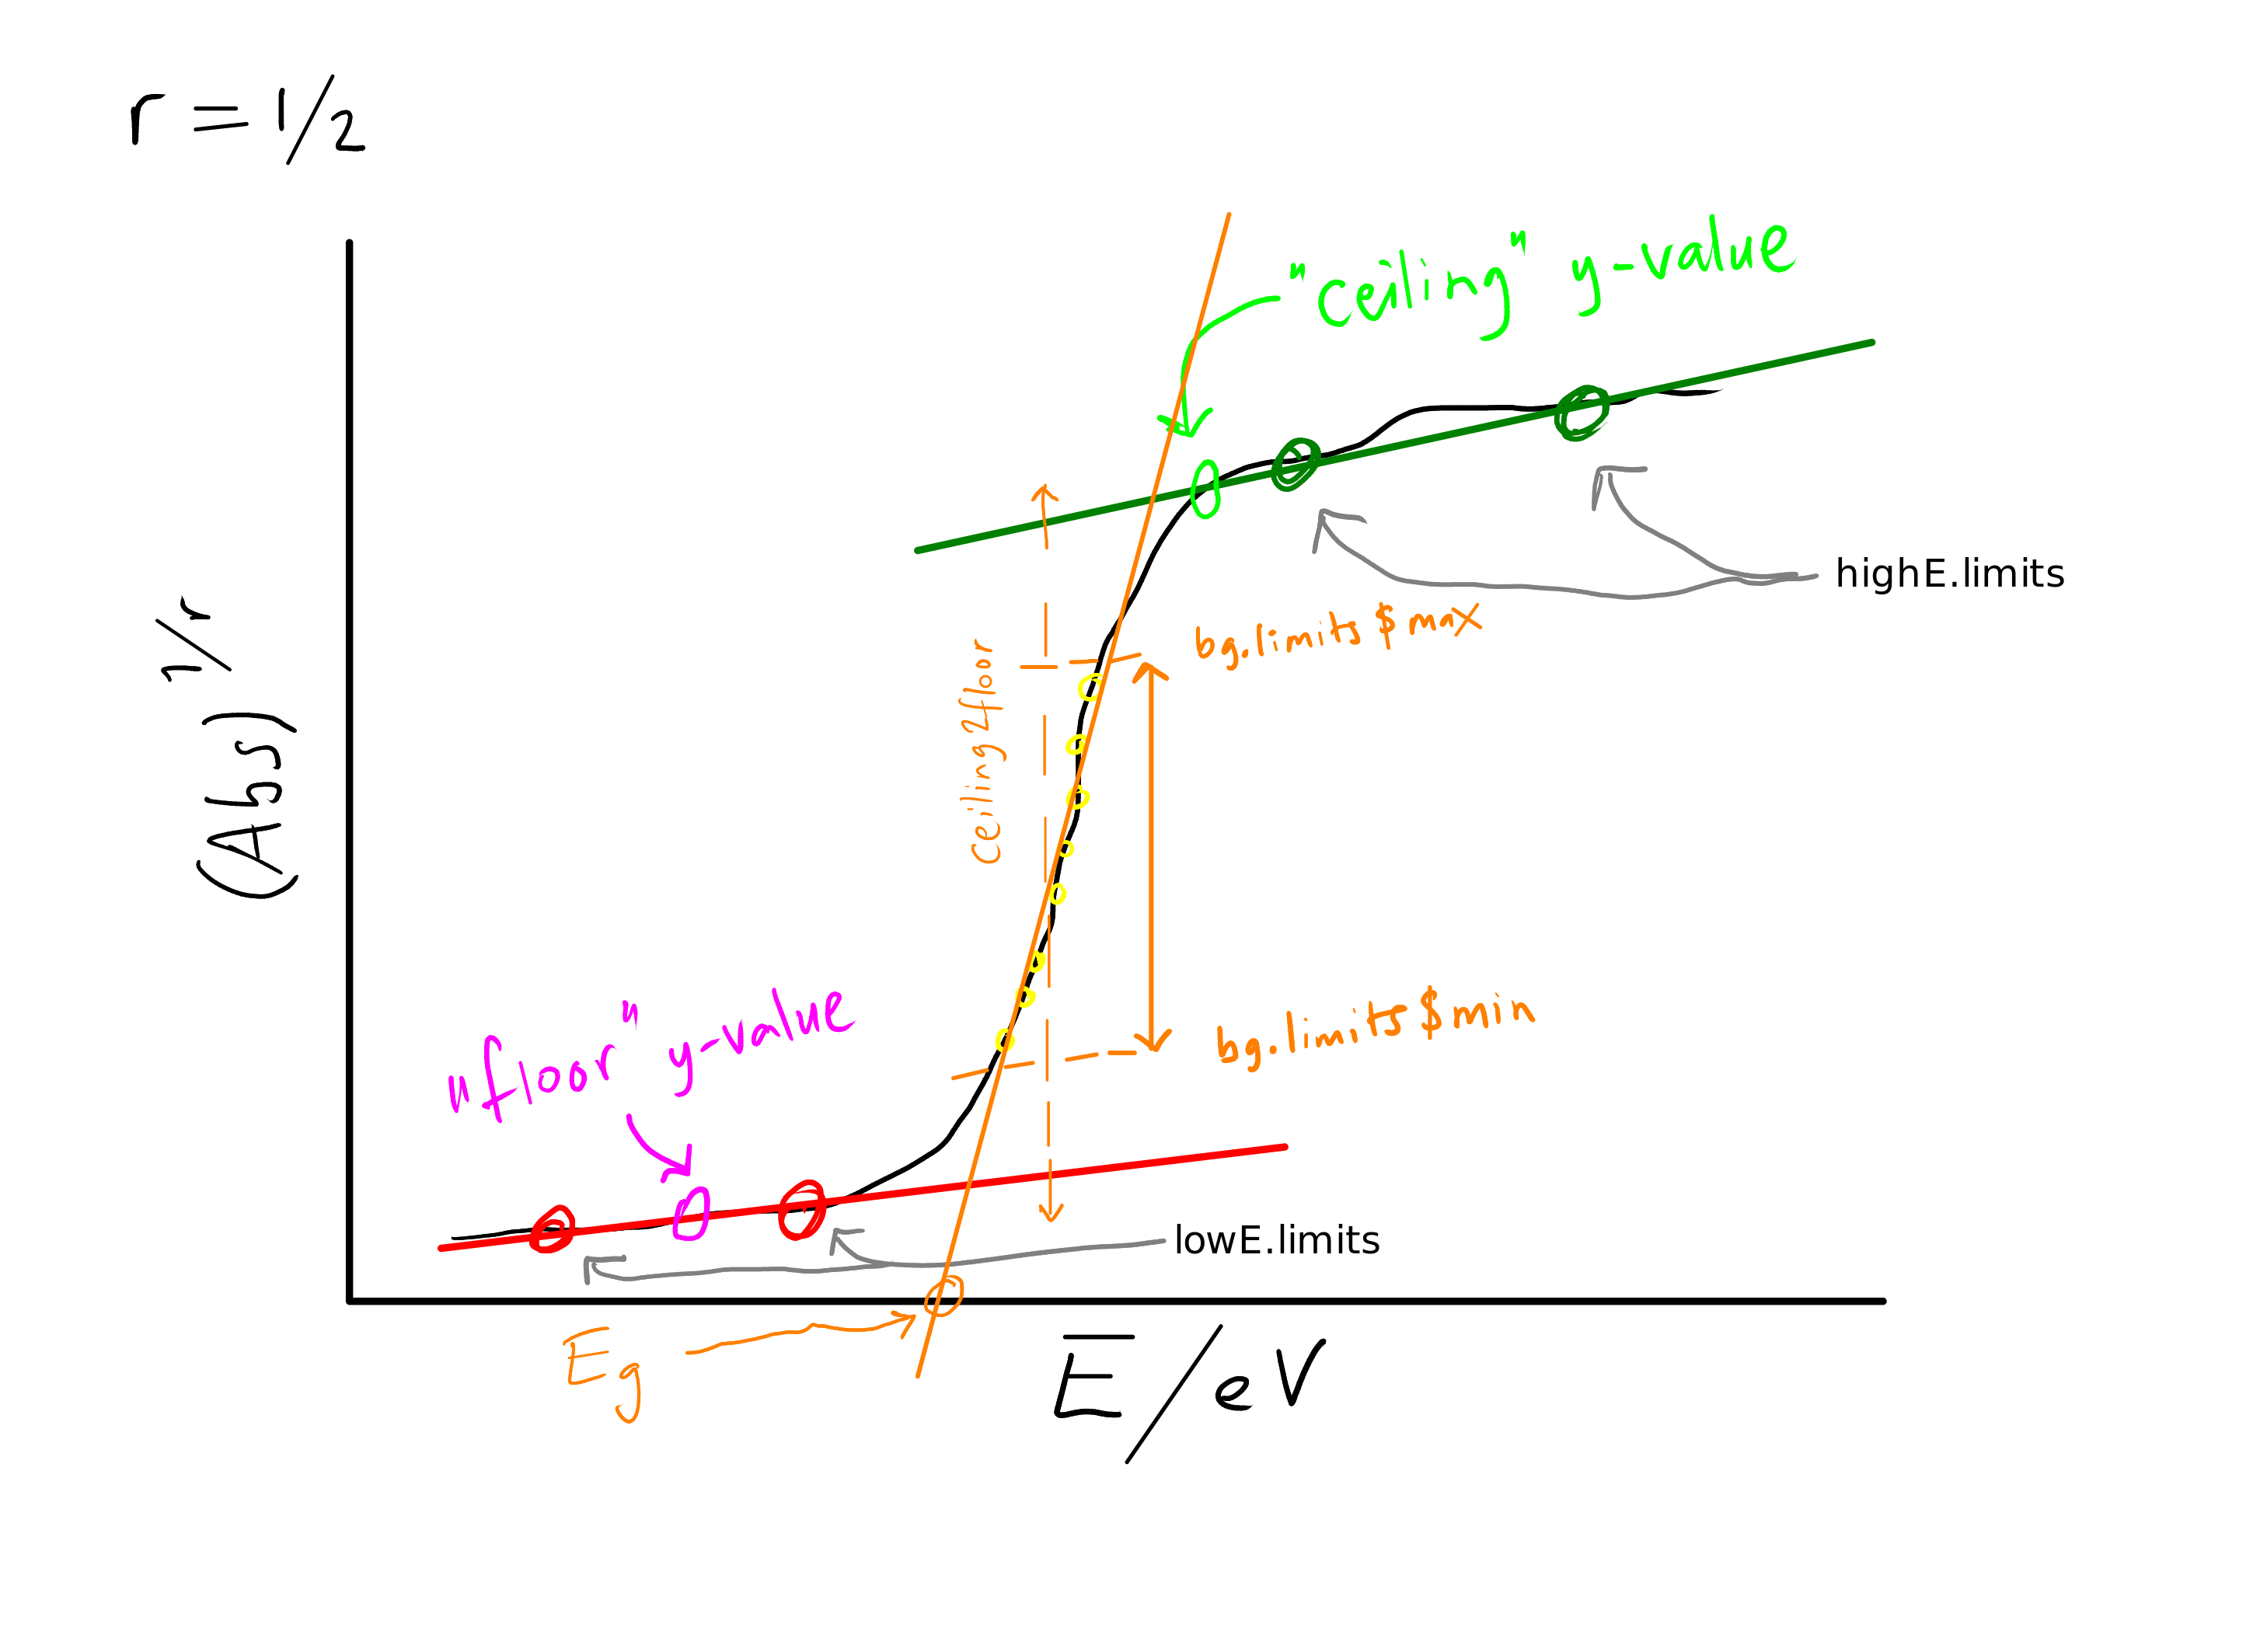 r = 1/2
"ceiling" y-value
highE.limits
bg.limits$max
ceiling2floor
(Abs)^1/r
bg.limits$min
"floor" y-value
lowE.limits
Eg
E/eV